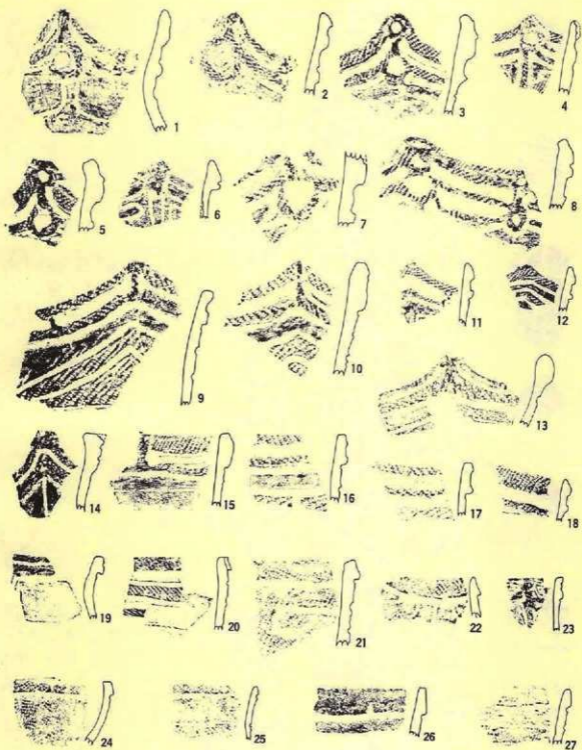 1 2 3 4
5 6 7 8
9 10 11 12
13
14 15 16 17 18
19 20 21 22 23
24 25 26 27